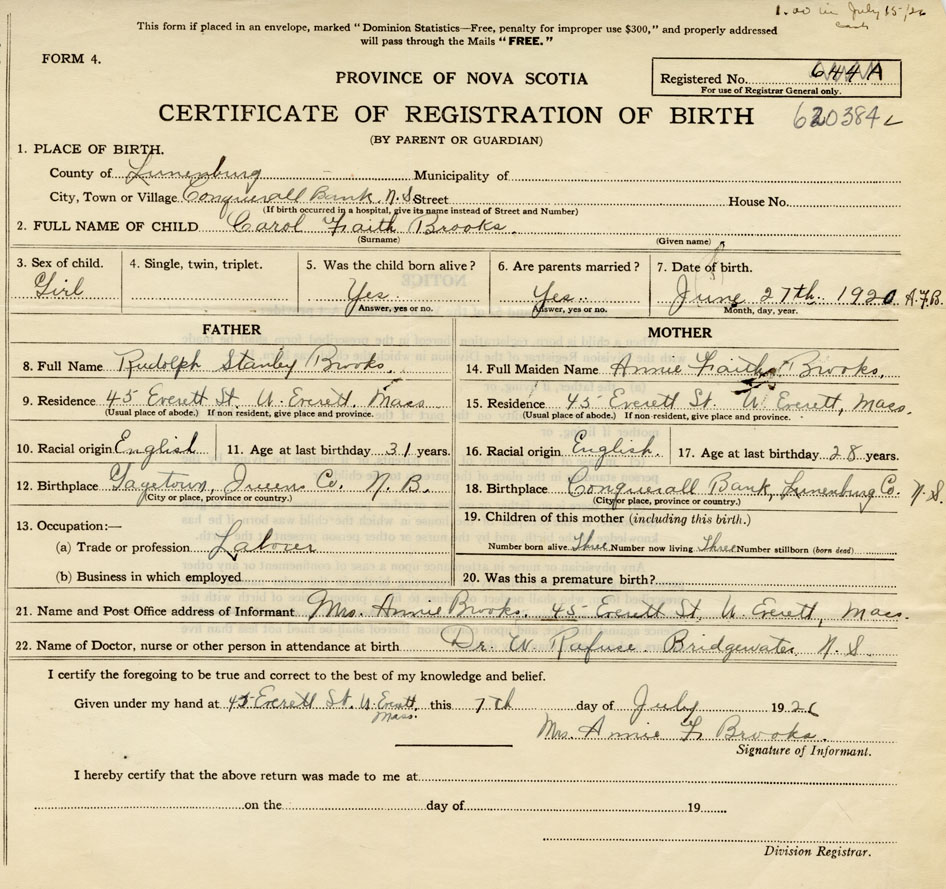 1.00 in July 15/26
cash
This form if placed in an envelope, marked "Dominion Statistics—Free, penalty for improper use $300," and properly addressed
will pass through the Mails "FREE."
FORM 4.
PROVINCE OF NOVA SCOTIA
Registered No. 644A
For use of Registrar General only.
CERTIFICATE OF REGISTRATION OF BIRTH
620384
(BY PARENT OR GUARDIAN)
1. PLACE OF BIRTH.
County of Lunenburg Municipality of
City, Town or Village Conquerall Bank, N.S. Street House No.
(If birth occurred in a hospital, give its name instead of Street and Number)
2. FULL NAME OF CHILD Carol Faith Brooks.
(Surname) (Given name)
3. Sex of child. 4. Single, twin, triplet. 5. Was the child born alive? 6. Are parents married? 7. Date of birth.
Girl Yes. Yes. June 27th. 1920 A.F.B.
Answer, yes or no. Answer, yes or no. Month, day, year.
FATHER MOTHER
8. Full Name Rudolph Stanley Brooks. 14. Full Maiden Name Annie Faith Brooks,
9. Residence 45 Everett St. W. Everett, Mass 15. Residence 45 Everett St. W. Everett, Mass.
(Usual place of abode.) If non resident, give place and province. (Usual place of abode.) If non-resident, give place and province.
10. Racial origin English 11. Age at last birthday 31 years. 16. Racial origin English. 17. Age at last birthday 28 years.
12. Birthplace Gagetown, Queens Co. N. B. 18. Birthplace Conquerall Bank, Lunenburg Co. N. S.
(City or place, province or country.) (City or place, province or country.)
13. Occupation:— 19. Children of this mother (including this birth.)
(a) Trade or profession Laborer Number born alive Three Number now living Three Number stillborn (born dead)
(b) Business in which employed 20. Was this a premature birth?
21. Name and Post Office address of Informant Mrs. Annie Brooks. 45 Everett St, W. Everett, Mass.
22. Name of Doctor, nurse or other person in attendance at birth Dr. W. Rafuse. Bridgewater, N. S.
I certify the foregoing to be true and correct to the best of my knowledge and belief.
Given under my hand at 45 Everett St. W. Everett, Mass. this 7th day of July 192
Mrs. Annie F. Brooks.
Signature of Informant.
I hereby certify that the above return was made to me at
on the day of 19
Division Registrar.